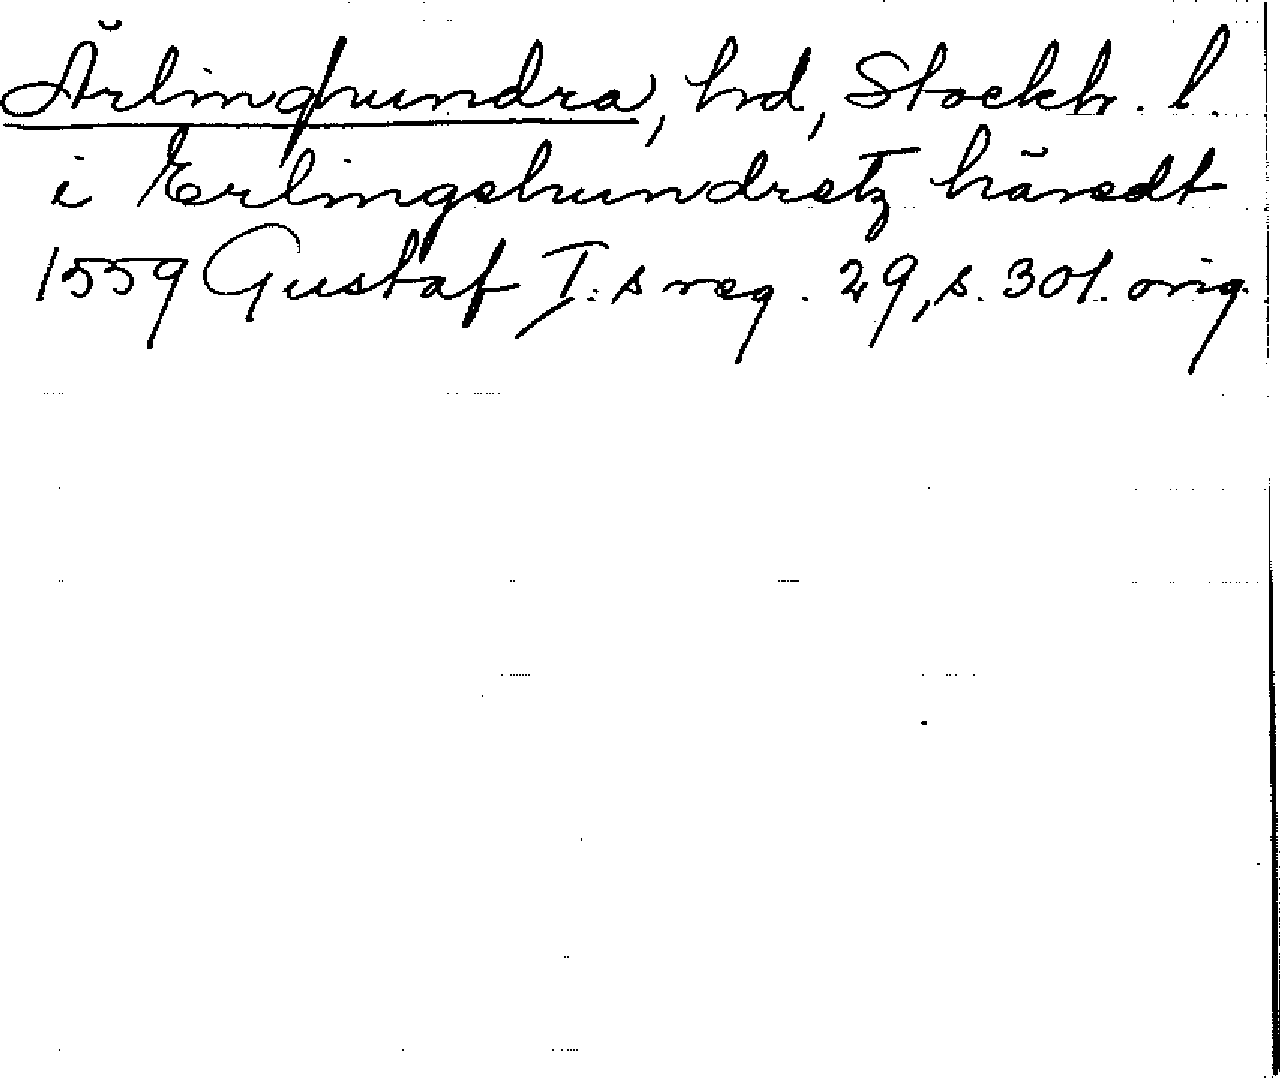 Ärlinghundra, hd, Stockh. l.
i Erlingshundretz häredt
1559 Gustaf I:s reg. 29, s. 301. orig.